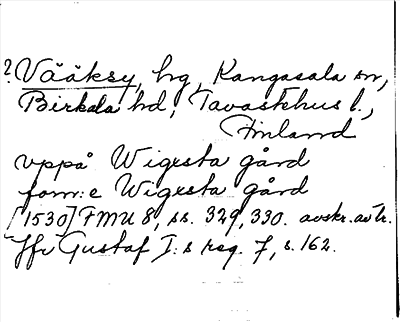 ? Vääksy, hg, Kangasala sn,
Birkala hd, Tavastehus l.,
Finland
uppå Wigesta gård
fom:e Wigesta gård
[1530] FMU 8, ss. 329, 330. avskr. av tr.
Jfr Gustaf I:s reg. 7, s. 162.